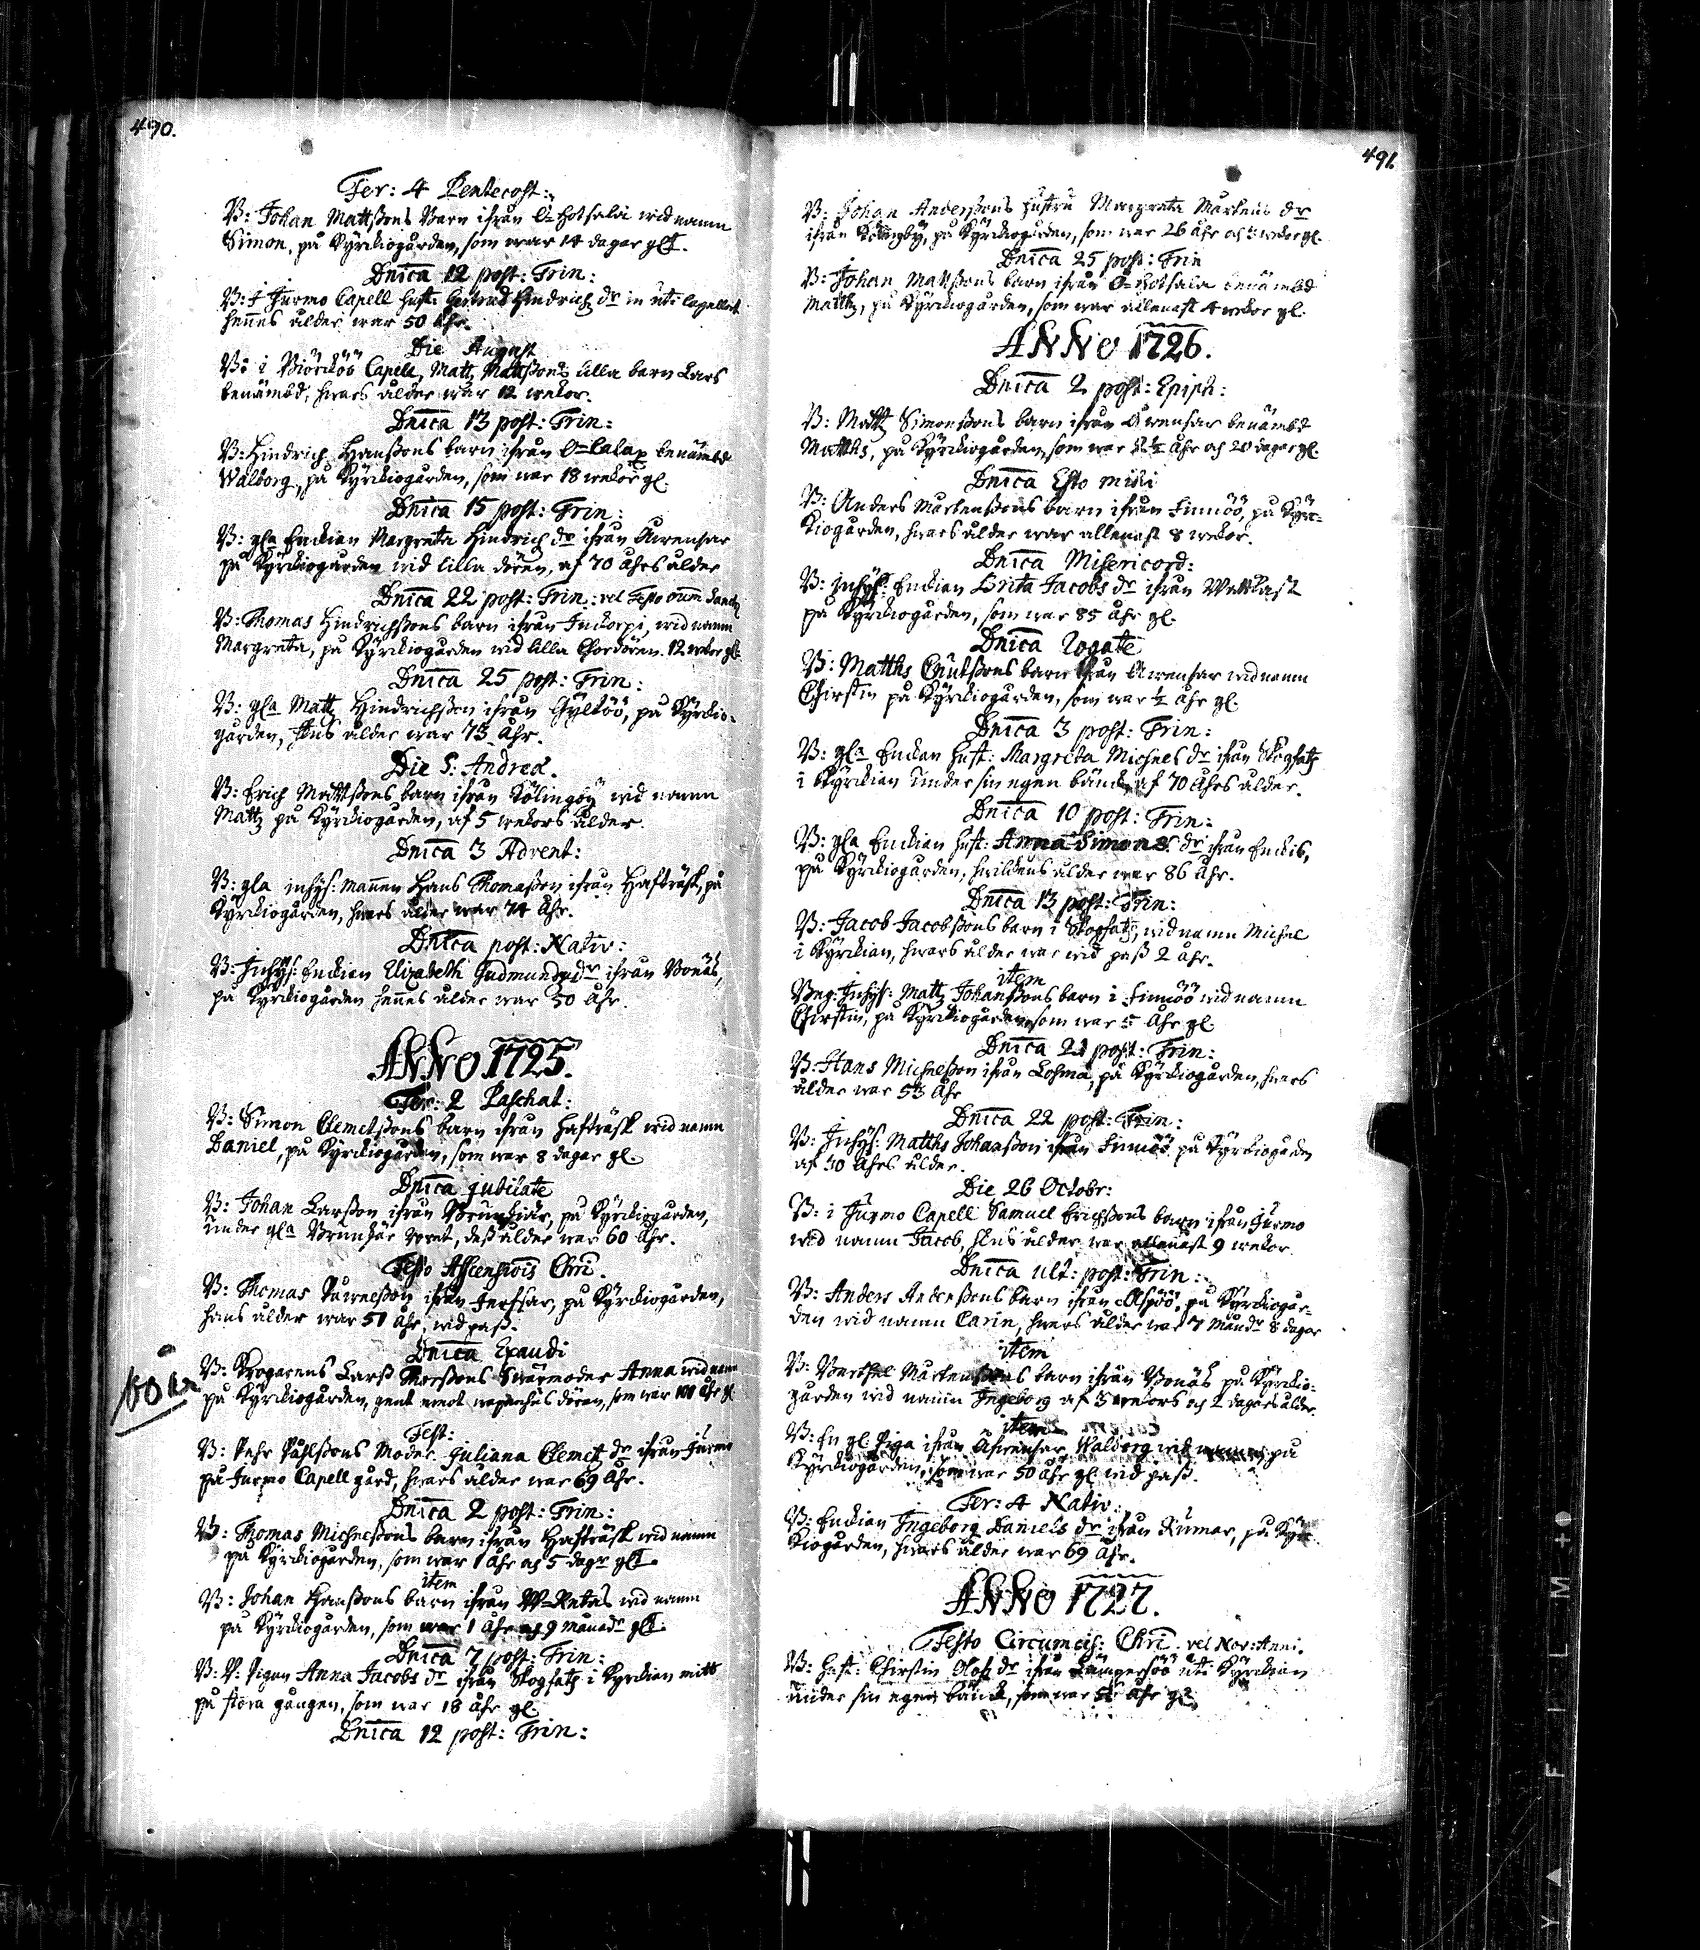 490.
Fer: 4 Pentecost:
B: Johan Mattssons Barn ifrån Ö=hotsala wid namn
Simon, på Kÿrkiogården, som war 14 dagar glt.
Dnica 12 post: Trin:
B: i Jurmo Capell hust: Gertrud Hindrich dr in uti Capellet
hennes ålder war 50 åhr.
Die August
B: i Biörköö Capell, Matz Mattssons lilla barn Lars
benämbd, hwars ålder war 12 wekor.
Dnica 13 post: Trin:
B: Hindrich Hanssons barn ifrån Ö=Lalax benämbd
Walborg, på Kÿrkiogården, som war 18 wekor gl.
Dnica 15 post: Trin:
B: gla Enckian Margreta Hindrich dr ifrån Åwensar
på Kÿrkiogården wid lilla dören, af 70 åhrs ålder
Dnica 22 post: Trin: vel Festo Oum Sanct
B: Thomas Hindrichssons barn ifrån Inkorpi, wid namn
Margreta, på Kÿrkiogården wid lilla Chordören. 12 wekor gl:
Dnica 25 post: Trin:
B: gla Matz Hindrichsson ifrån Gÿltöö, på Kÿrkio-
gården, hans ålder war 73 åhr.
Die S: Andreæ.
B: Erich Mattssons barn ifrån Kölingbÿ wid namn
Matz på Kÿrkiogården, af 5 wekors ålder.
Dnica 3 Advent:
B: gla inhÿs: mannen Hans Thomasson ifrån Hafträsk, på
Kÿrkiogården, hwars ålder war 74 åhr.
Dnica post: Nativ:
B: Inhÿs: Enckian Elizabeth Gudmunds dr ifrån Bonäs,
på Kÿrkiogården hennes ålder war 50 åhr.
ANNO 1725.
Fer: 2 Paschat:
B: Simon Clemetssons barn ifrån Hafträsk wid namn
Daniel, på Kÿrkiogården, som war 8 dagar gl.
Dnica jubilate
B: Johan Larsson ifrån Brunskiär, på Kÿrkiogården,
under gla Brunskär, dess ålder war 60 åhr.
Festo Ascensiois Chri.
B: Thomas ifrån, på Kÿrkiogården,
hans ålder war 50 åhr, wid pass.
Dnica Exaudi
B: Krogarens Larss Thorssons Swärmoder Anna wid namn
på Kÿrkiogården, gent emot wapenhus dören, som war 100 åhr gl
100 år
Fest:
B: Pehr Påhlssons Moder Juliana Clemet dr ifrån Jurmo
på Jurmo Capell gård, hwars ålder war 69 åhr.
Dnica 2 post: Trin:
B: Thomas Michelssons barn ifrån Hafträsk wid namn
på Kÿrkiogården, som war 1 åhr och 5 dagr glt.
item
B: Johan Hanssons barn ifrån W=Retais wid namn
på Kÿrkiogården, som war 1 åhr och 9 månadr glt.
Dnica 7 post: Trin:
B: P. Pigan Anna Jacobs dr ifrån Skogsatz i Kyrkian mitt
på stora gången, som war 18 åhr gl
Dnica 12 post: Trin:
491.
B: Johan Anderssons hustru Margreta Mårtens dr
ifrån, på Kÿrkiogården, som war 26 åhr och wekor gl.
Dnica 25 post: Trin
B: Johan Mattssons barn ifrån Ö=hotsala benämbd
Matthz, på Kÿrkiogården, som war allenast 4 wekor gl.
ANNO 1726.
Dnica 2 post: Epiph:
B: Matz Simonssons barn ifrån Åwensar benämbd
Matths, på Kÿrkiogården, som war ½ åhr och 20 dagar gl.
Dnica Esto mihi
B: Anders Mårtenssons barn ifrån Finnöö, på Kÿr-
kiogården, hwars ålder war allenast 8 wekor.
Dnica Misericord:
B: inhÿs: Enckian Brita Jacobs dr ifrån Wattkast
på Kÿrkiogården, som war 85 åhr gl.
Dnica Rogate
B: Matths Cnutssons barn ifrån Åwensar wid namn
Chirstin på Kÿrkiogården, som war ½ åhr gl.
Dnica 3 post: Trin:
B: gla Enckan hust: Margreta Michels dr ifrån Skogsatz
i Kÿrkian under sin egen bänck, af 70 åhrs ålder.
Dnica 10 post: Trin:
B: gla Enckian hust: Anna Simons dr ifrån Enckis,
på Kÿrkiogården, hwilckens ålder war 86 åhr.
Dnica 13 post: Trin:
B: Jacob Jacobssons barn i Skogsatz, wid namn Michel
i Kÿrkian, hwars ålder war wid pass 2 åhr.
item
Bng: Inhÿs: Matz Johanssons barn i Finnöö wid namn
Chirstin, på Kÿrkiogården som war 5 åhr gl.
Dnica 21 post: Trin:
B: Hans Michelsson ifrån Lohma, på Kÿrkiogården, hwars
ålder war 53 åhr
Dnica 22 post: Trin:
B: Inhÿs: Matths Johansson ifrån Finnöö på Kÿrkiogården
af 30 åhrs ålder.
Die 26 Octobr:
B: i Jurmo Capell Samuel Erichssons barn ifrån Jurmo
wid namn Jacob, hans ålder war allenast 9 wekor
Dnica ult: post: Trin:
B: Anders Anderssons barn ifrån Aspöö, på Kÿrkiogår-
den wid namn Carin, hwars ålder war 7 månadr 8 dagar
item
B: Barthel Mårtenssons barn ifrån Bonäs på Kÿrkio-
gården wid namn Ingeborg af 3 wekors och 2 dagars ålder.
item
B: En gl Piga ifrån Åhwensar, Walborg wid namn, på
Kÿrkiogården, som war 50 åhr gl wid pass.
Fer: 4 Nativ:
B: Enckian Ingeborg Daniels dr ifrån Rumar, på Kÿr-
kiogården, hwars ålder war 69 åhr.
ANNO 1727.
Festo Circumcis: Chri. vel Nov: Anni.
B: hust: Chirstin Olofz dr ifrån Lämpersöö uti Kÿrkian
under sin egen bänck, som war åhr gl